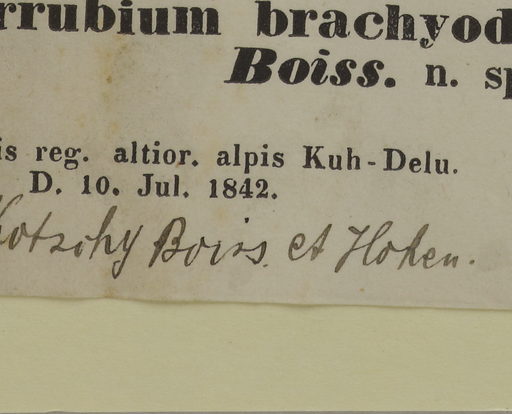 rrubium brachyod
Boiss. n. sp
is reg. altior. alpis Kuh-Delu.
D. 10. Jul. 1842.
Kotschy Boiss. et Hohen.